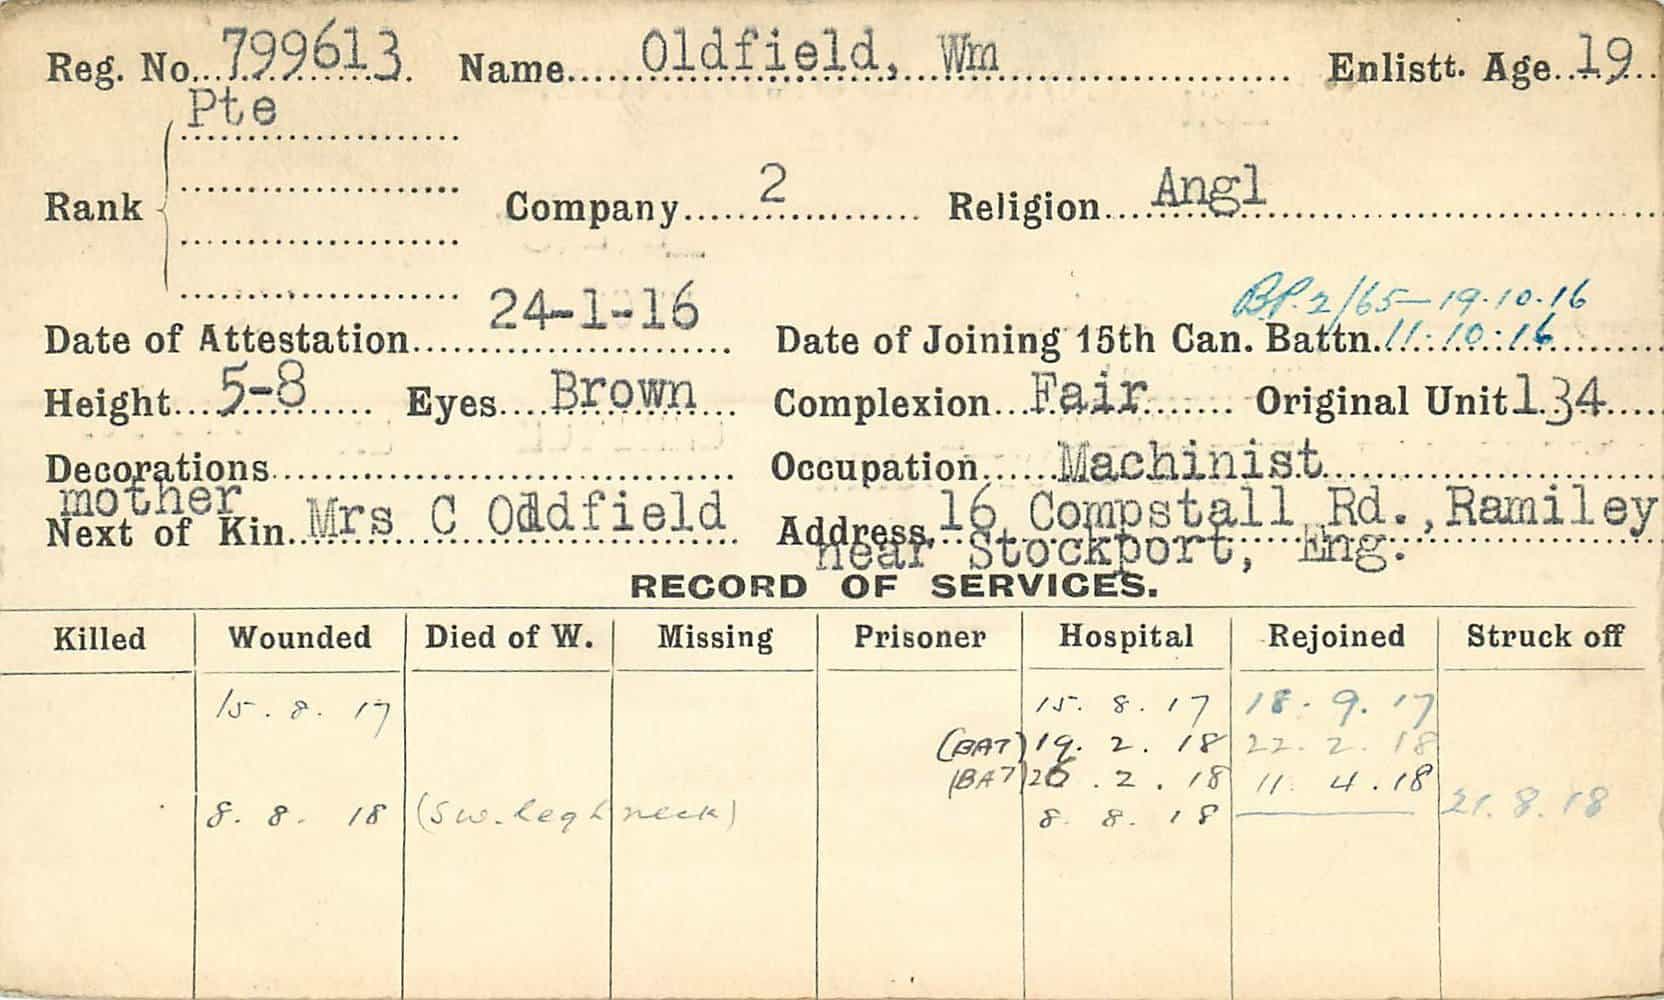 Reg. No. 799613 Name Oldfield, Wm Enlistt. Age 19
Pte
Rank Company 2 Religion Angl
BP. 2/65 - 19.10.16
Date of Attestation 24-1-16 Date of Joining 15th Can. Battn. 11.10.16
Height 5-8 Eyes Brown Complexion Fair Original Unit 134
Decorations Occupation Machinist
mother
Next of Kin Mrs C Oddfield Address 16 Compstall Rd., Ramiley
near Stockport, Eng.
RECORD OF SERVICES.
Killed Wounded Died of W. Missing Prisoner Hospital Rejoined Struck off
15.8.17 15.8.17 18.9.17
(BAT) 19.2.18 22.2.18
(BAT) 26.2.18 11.4.18
8.8.18 (Sw. leg & neck) 8.8.18 21.8.18